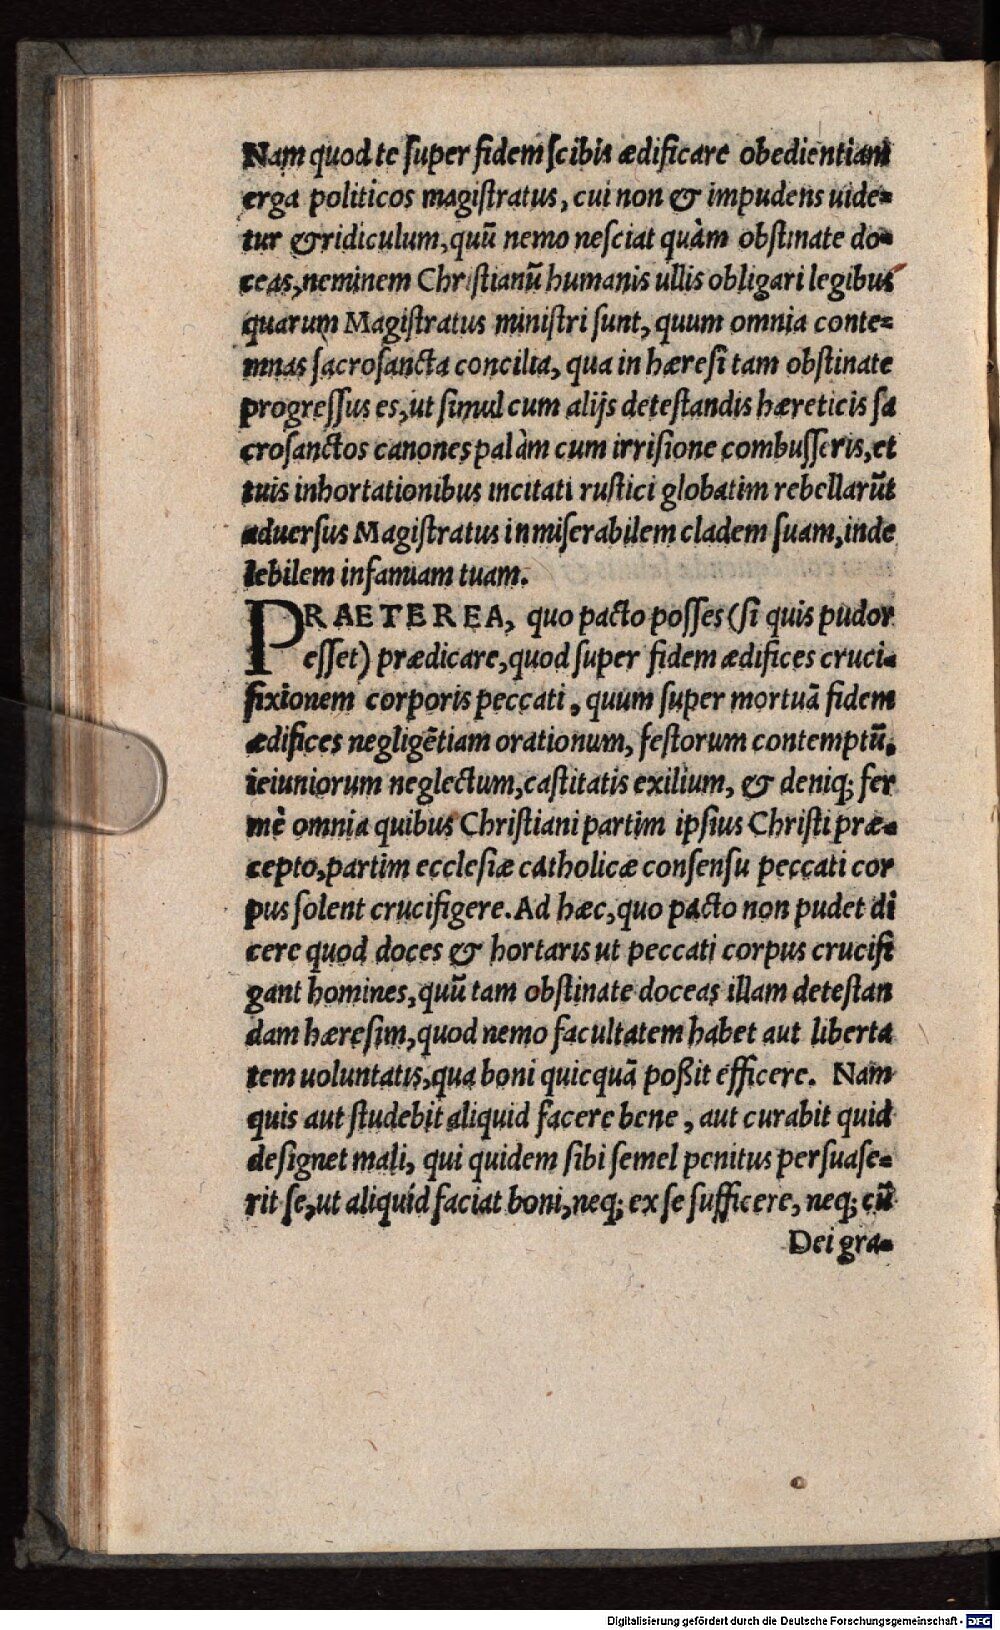 Nam quod te ſuper fidem ſcibis ædificare obedientiam
erga politicos magiſtratus, cui non & impudens uide-
tur & ridiculum, quū nemo neſciat quàm obſtinate do-
ceas, neminem Chriſtianū humanis ullis obligari legibus
quarum Magiſtratus miniſtri ſunt, quum omnia conte-
mnas ſacroſancta concilia, qua in hæreſi tam obſtinate
progreſſus es, ut ſimul cum alijs deteſtandis hæreticis ſa
croſanctos canones palàm cum irriſione combuſſeris, et
tuis inhortationibus incitati ruſtici globatim rebellarūt
aduerſus Magiſtratus in miſerabilem cladem ſuam, inde
lebilem infamiam tuam.
PRAETEREA, quo pacto poſſes (ſi quis pudor
eſſet) prædicare, quod ſuper fidem ædifices cruci-
fixionem corporis peccati, quum ſuper mortuā fidem
ædifices negligētiam orationum, feſtorum contemptū,
ieiuniorum neglectum, caſtitatis exilium, & deniq; fer
mè omnia quibus Chriſtiani partim ipſius Chriſti præ-
cepto, partim eccleſiæ catholicæ conſenſu peccati cor
pus ſolent crucifigere. Ad hæc, quo pacto non pudet di
cere quod doces & hortaris ut peccati corpus crucifi
gant homines, quū tam obſtinate doceas illam deteſtan
dam hæreſim, quod nemo facultatem habet aut liberta
tem uoluntatis, qua boni quicquā poßit efficere. Nam
quis aut ſtudebit aliquid facere bene, aut curabit quid
deſignet mali, qui quidem ſibi ſemel penitus perſuaſe-
rit ſe, ut aliquid faciat boni, neq; ex ſe ſufficere, neq; cū
Dei gra-
Digitalisierung gefördert durch die Deutsche Forschungsgemeinschaft - DFG